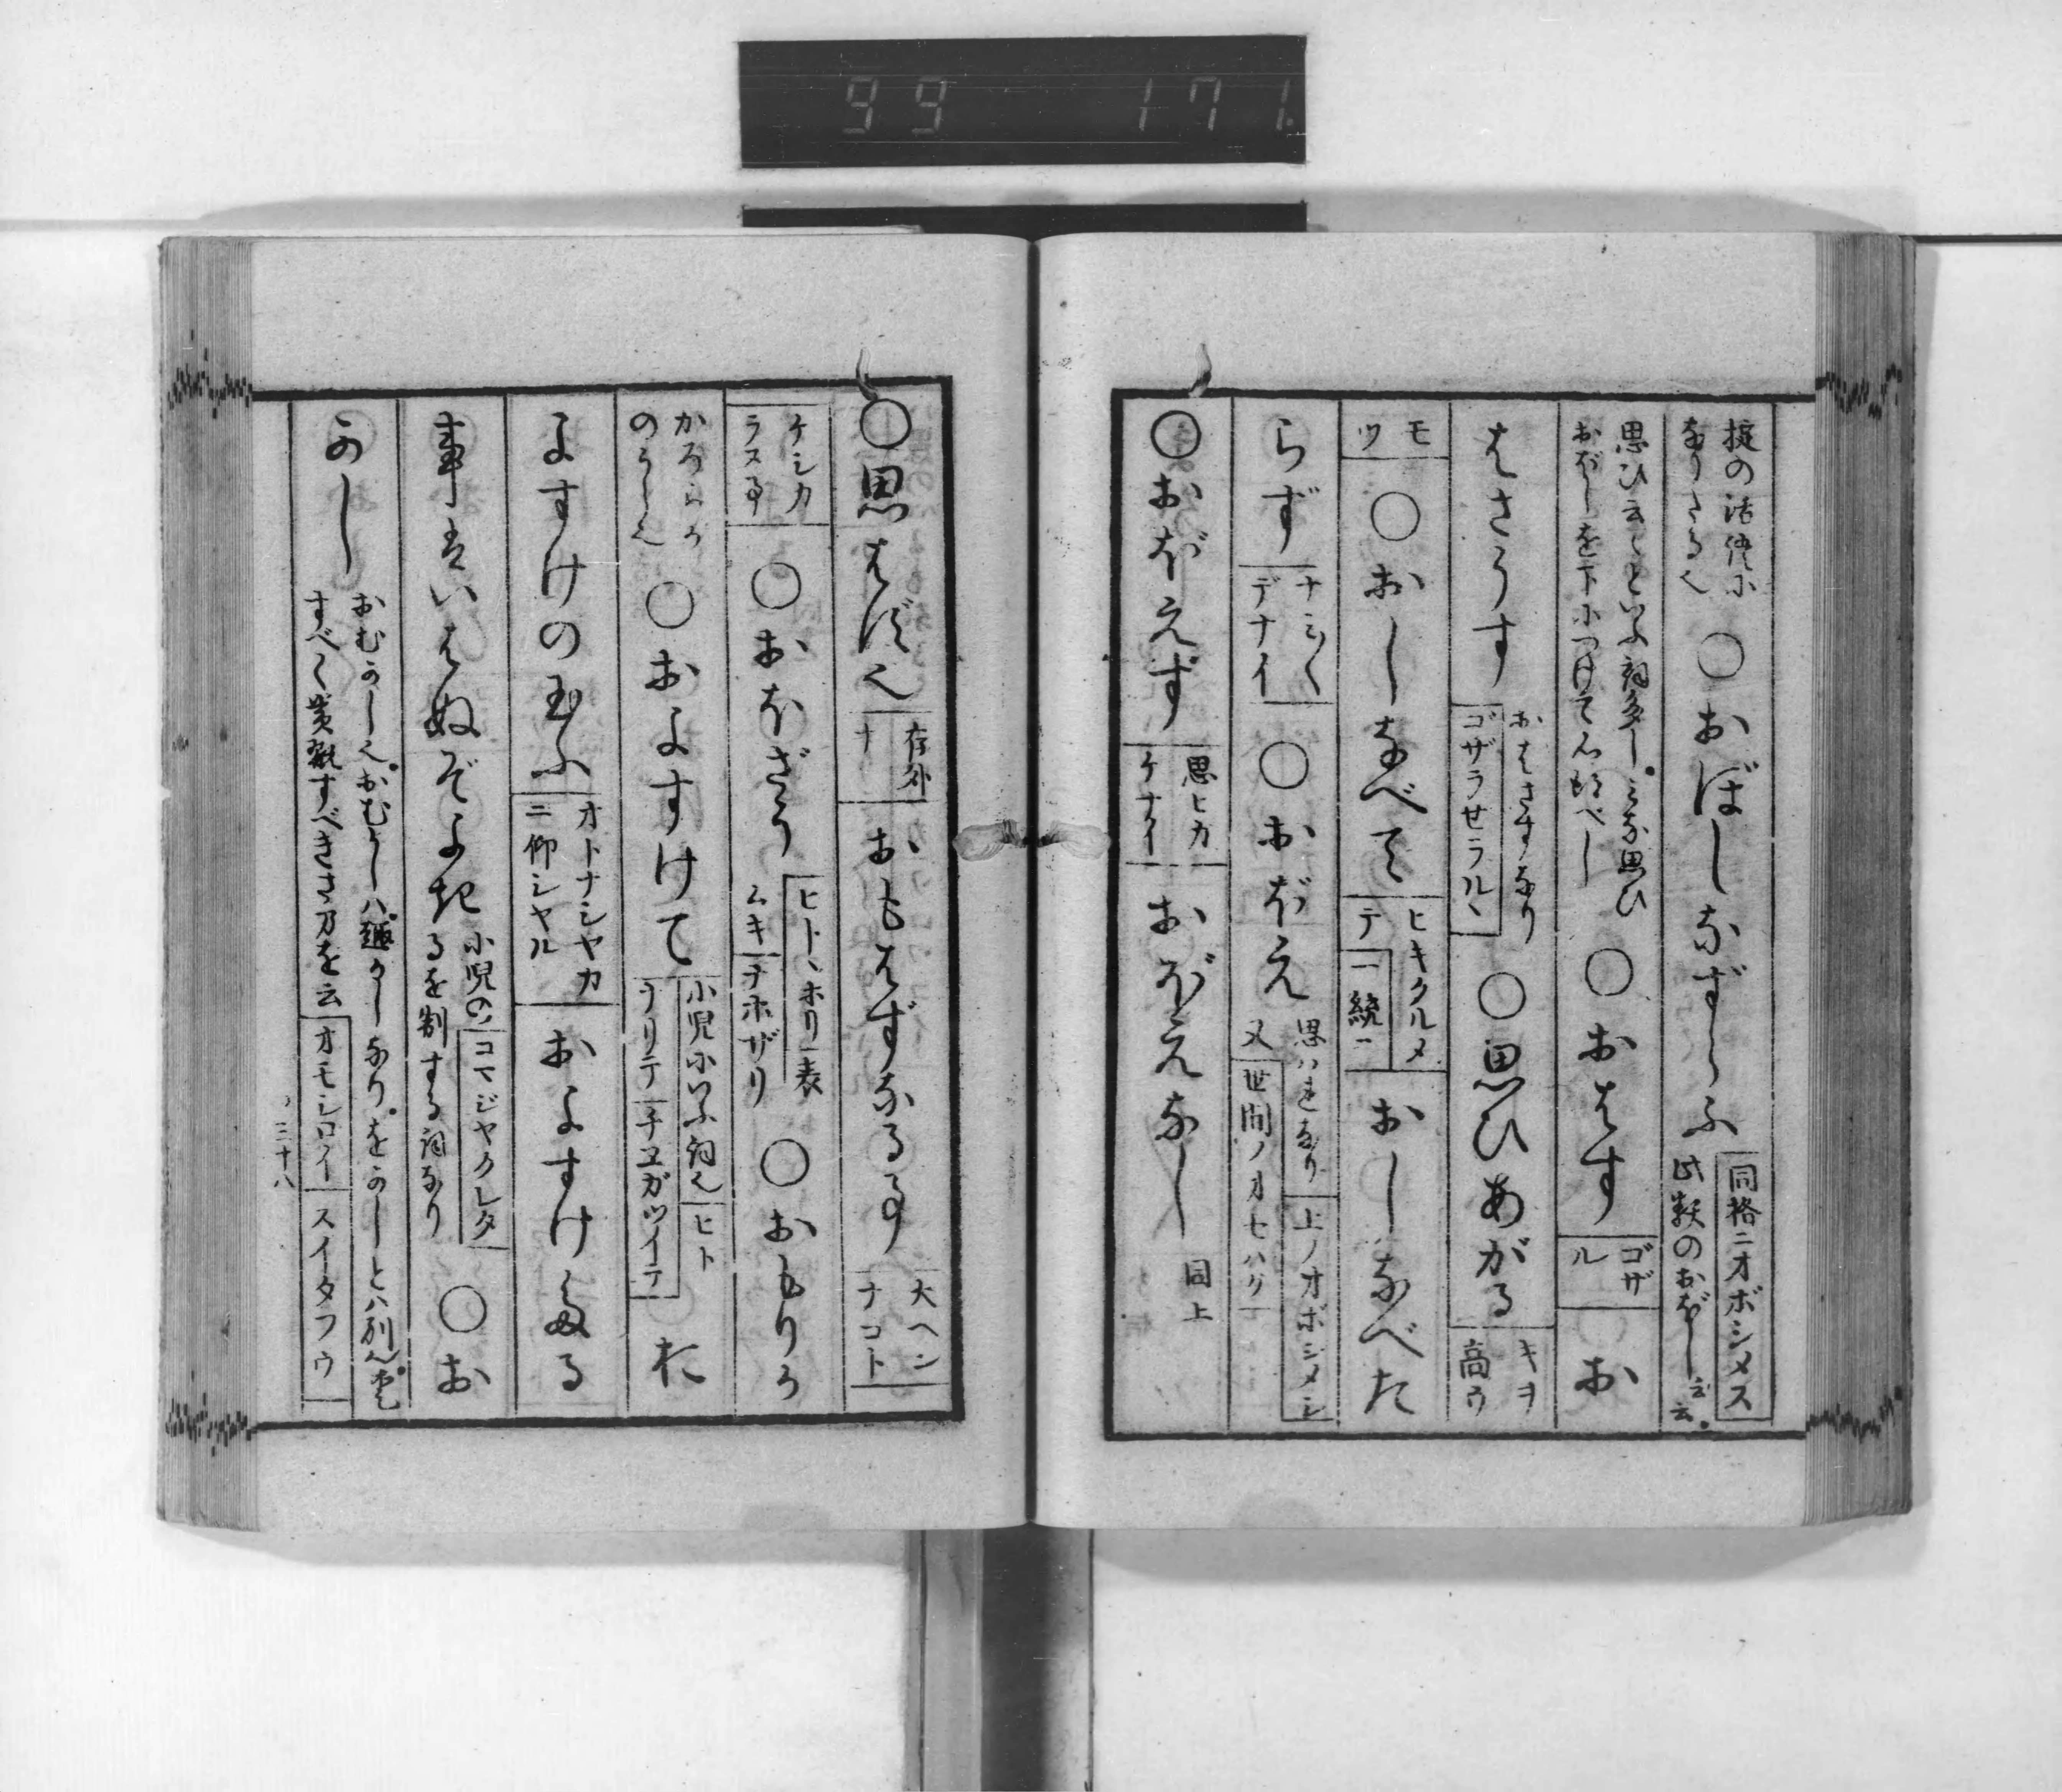 99 171
掟の活線に
なりたる也
○おぼしなずらふ
同格ニオボシメス
此類のおぼし云云
思ひ云々といふ詞多しみな思ひ
おぼしを下につけて心得べし
○おはす
ゴザ
ル
お
はさうす
おはさすなり
ゴザラセラルヽ
○思ひあがる
キヲ
高ウ
モ
ツ
○おしなべて
ヒキクルメ
テ
一統ニ
おしなべた
らず
ナミ〱
デナイ
○おぼえ
思はれなり
上ノオボシメシ
又
世間ノオセハグ
○おぼえず
思ヒカ
ケナイ
おぼえなし
同上
○思はずに
存外
ナ
おもはずなる事
大ヘン
ナコト
ケシカ
ラヌ事
○おほざう
ヒトヽホリ
表
ムキ
ナホザリ
○おもりか
かろらか
のうら也
○およすけて
小児にいふ詞也
ヒト
ナリテ
チヱガツイテ
およすけの玉ふ
オトナシヤカ
ニ仰シヤル
およすけたる
事はいはぬぞよき
小児の
コマジヤクレタ
るを制する詞なり
○お
かし
おむかし也おむかしハ面向かしなりをかしとハ別也
すべて賞翫すべきさまを云
オモシロイ
スイタフウ
三十八